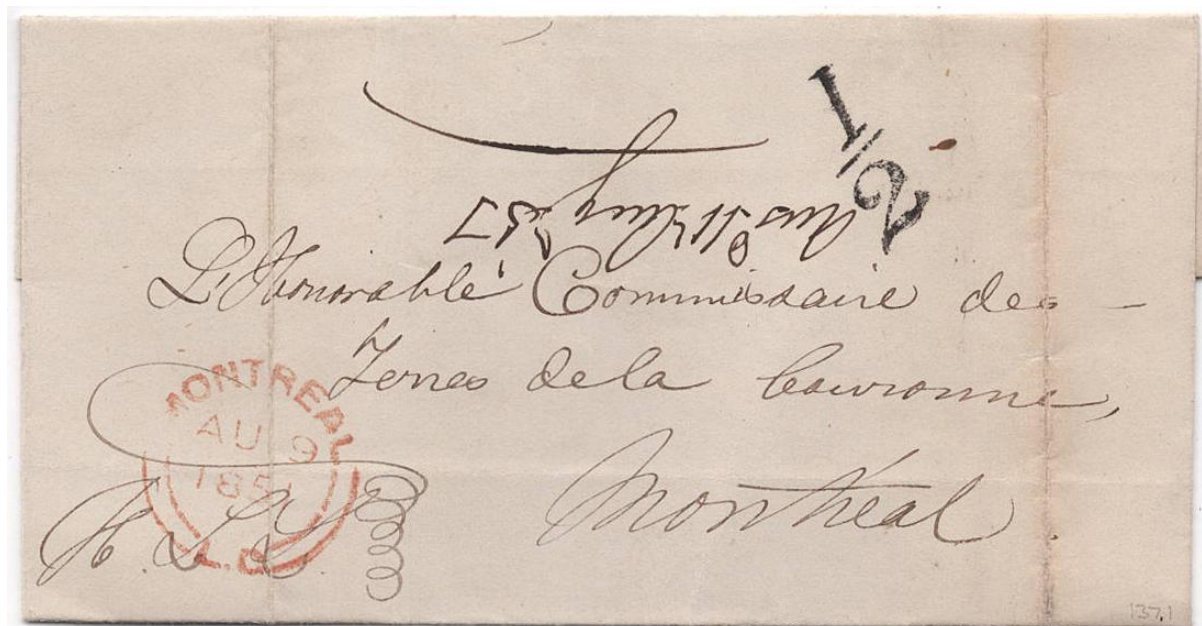 1/2
L'Honorable Commissaire des
Terres de la Couronne,
Montréal
MONTREAL
AU 9
1851
L.C.
137.1